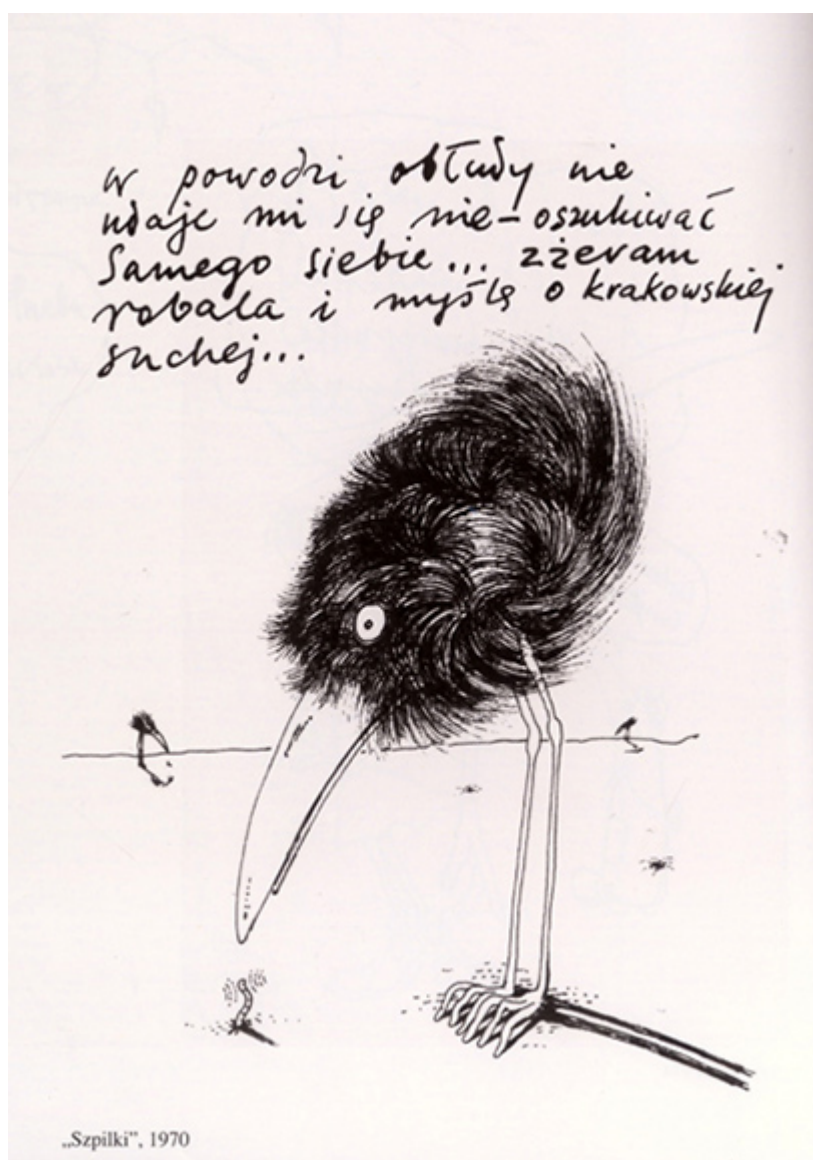 w powodzi obłudy nie
udaje mi się nie-oszukiwać
samego siebie... zżeram
robala i myślę o krakowskiej
suchej...
„Szpilki”, 1970